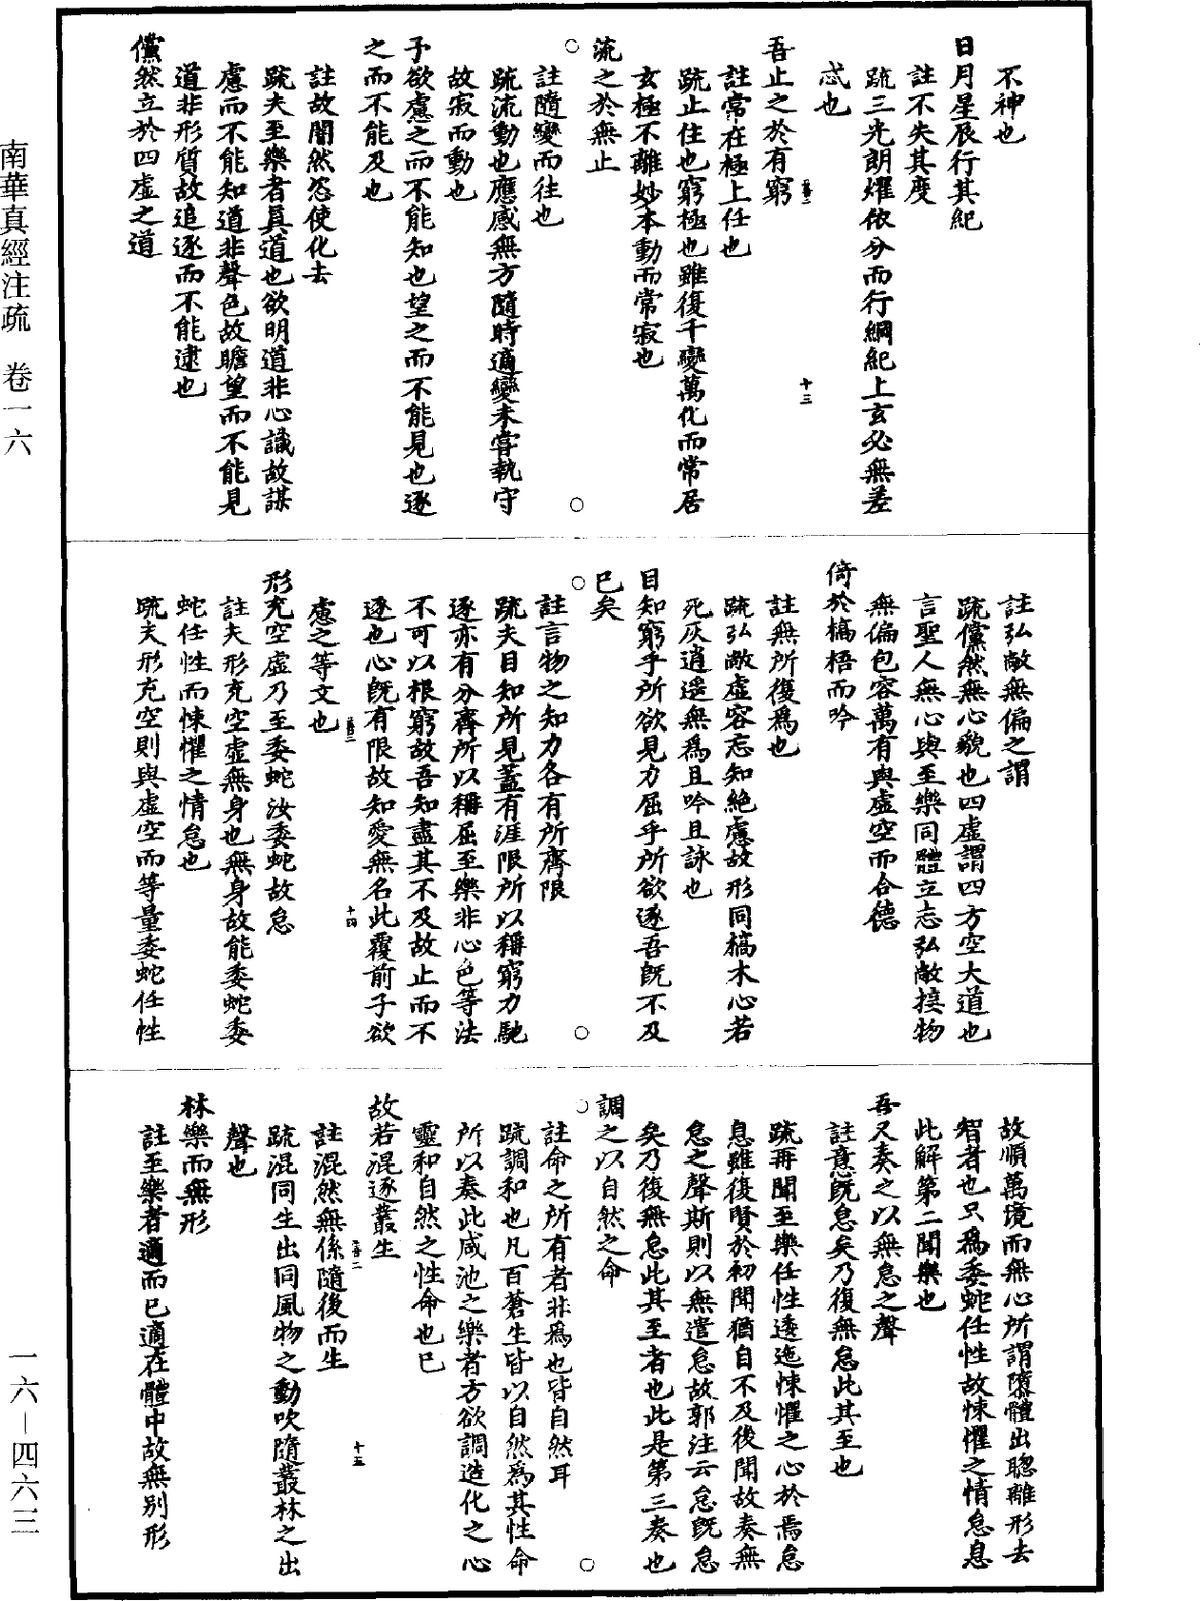 不神也
日月星辰行其紀
註不失其度
疏三光朗耀依分而行綱紀上玄必無差
忒也
吾止之於有窮
註常在極上任也
疏止住也窮極也雖復千變萬化而常居
玄極不離妙本動而常寂也
流之於無止
註隨變而往也
疏流動也應感無方隨時適變未甞執守
故寂而動也
予欲慮之而不能知也望之而不能見也逐
之而不能及也
註故闇然恣使化去
疏夫至樂者真道也欲明道非心識故謀
慮而不能知道非聲色故瞻望而不能見
道非形質故追逐而不能逮也
儻然立於四虛之道
註弘敞無偏之謂
疏儻然無心貌也四虛謂四方空大道也
言聖人無心與至樂同體立志弘敞接物
無偏包容萬有與虛空而合德
倚於槁梧而吟
註無所復爲也
疏弘敞虛容忘知絶慮故形同槁木心若
死灰逍遥無爲且吟且詠也
目知窮乎所欲見力屈乎所欲逐吾既不及
已矣
註言物之知力各有所齊限
疏夫目知所見蓋有涯限所以稱窮力馳
逐亦有分齊所以稱屈至樂非心色等法
不可以根窮故吾知盡其不及故止而不
逐也心既有限故知愛無名此覆前予欲
慮之等文也
形充空虛乃至委蛇汝委蛇故怠
註夫形充空虛無身也無身故能委蛇委
蛇任性而悚懼之情怠也
疏夫形充空則與虛空而等量委蛇任性
故順萬境而無心所謂隳體出聰離形去
智者也只爲委蛇任性故悚懼之情怠息
此解第二聞樂也
吾又奏之以無怠之聲
註意既怠矣乃復無怠此其至也
疏再聞至樂任性逶迤悚懼之心於焉怠
息雖復賢於初聞猶自不及後聞故奏無
怠之聲斯則以無遣怠故郭注云怠既怠
矣乃復無怠此其至者也此是第三奏也
調之以自然之命
註命之所有者非爲也皆自然耳
疏調和也凡百蒼生皆以自然爲其性命
所以奏此咸池之樂者方欲調造化之心
靈和自然之性命也已
故若混逐叢生
註混然無係隨後而生
疏混同生出同風物之動吹隨叢林之出
聲也
林樂而無形
註至樂者適而已適在體中故無別形
十三
十四
十五
南華真經注疏　卷一六
一六—四六三